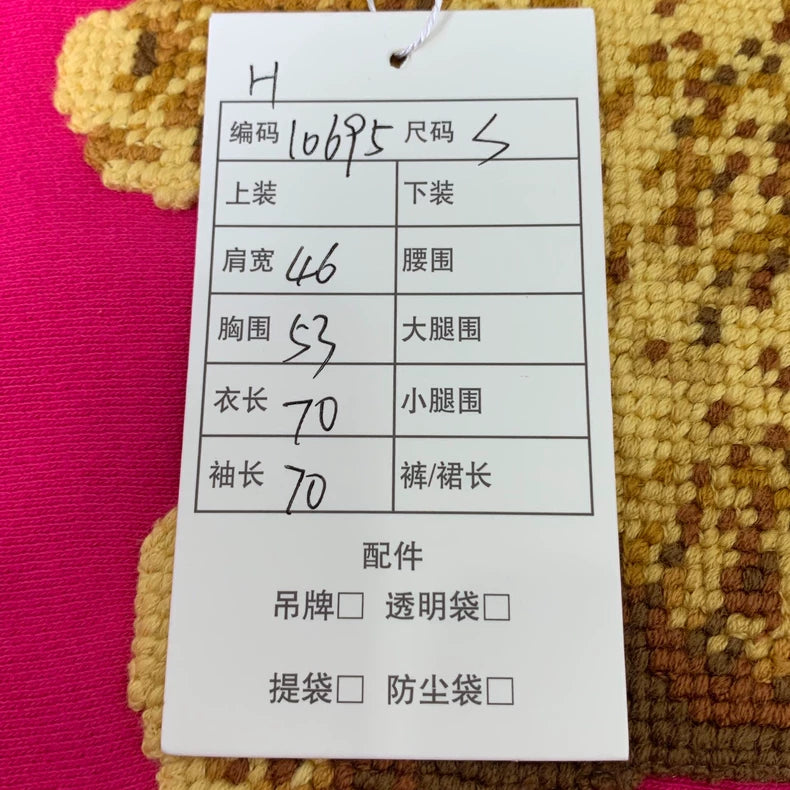 H
编码 10695 尺码 S
上装 下装
肩宽 46 腰围
胸围 53 大腿围
衣长 70 小腿围
袖长 70 裤/裙长
配件
吊牌□ 透明袋□
提袋□ 防尘袋□